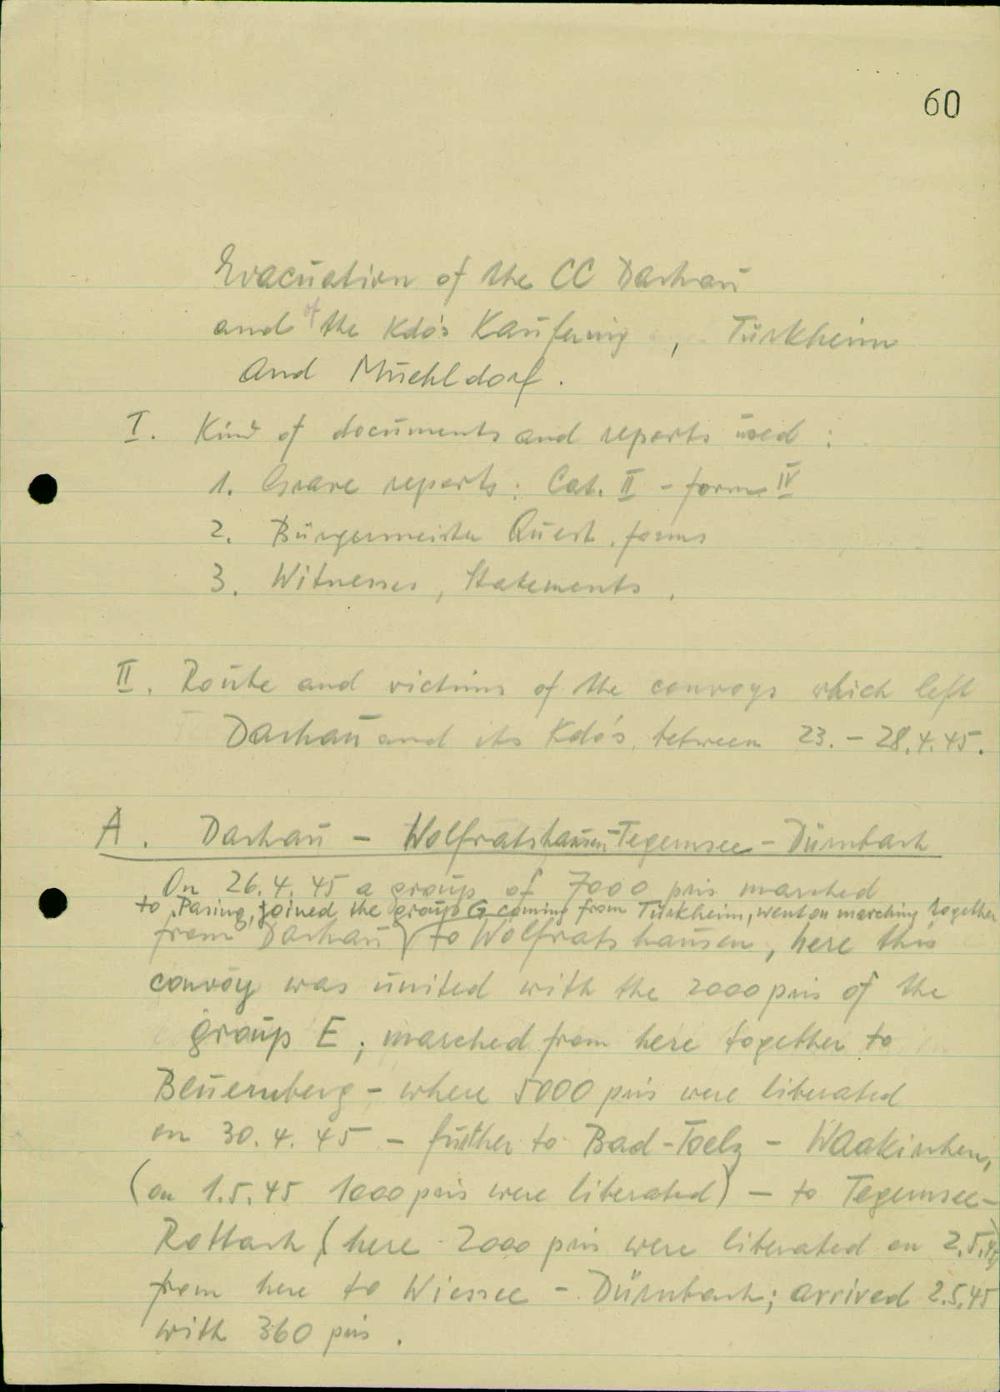 60
Evacuation of the CC Dachau
and of the Kdo's Kaufering, Türkheim
and Muehldorf.
I. Kind of documents and reports used:
1. Grave reports: Cat. II - form IV
2. Bürgermeister Quest. forms
3. Witnesses, Statements.
II. Route and victims of the convoys which left
Dachau and its Kdo's, between 23. - 28.4.45.
A. Dachau - Wolfratshausen - Tegernsee - Dürnbach
On 26.4.45 a group of 7000 pris marched
to Pasing, joined the group G coming from Türkheim, went on marching together
from Dachau to Wolfratshausen, here this
convoy was united with the 2000 pris of the
group E; marched from here together to
Beuernberg - where 5000 pris were liberated
on 30.4.45 - further to Bad-Toelz - Waakirchen,
(on 1.5.45 1000 pris were liberated) - to Tegernsee -
Rottach (here 2000 pris were liberated on 2.5.45)
from here to Wiessee - Dürnbach; arrived 2.5.45
with 360 pris.